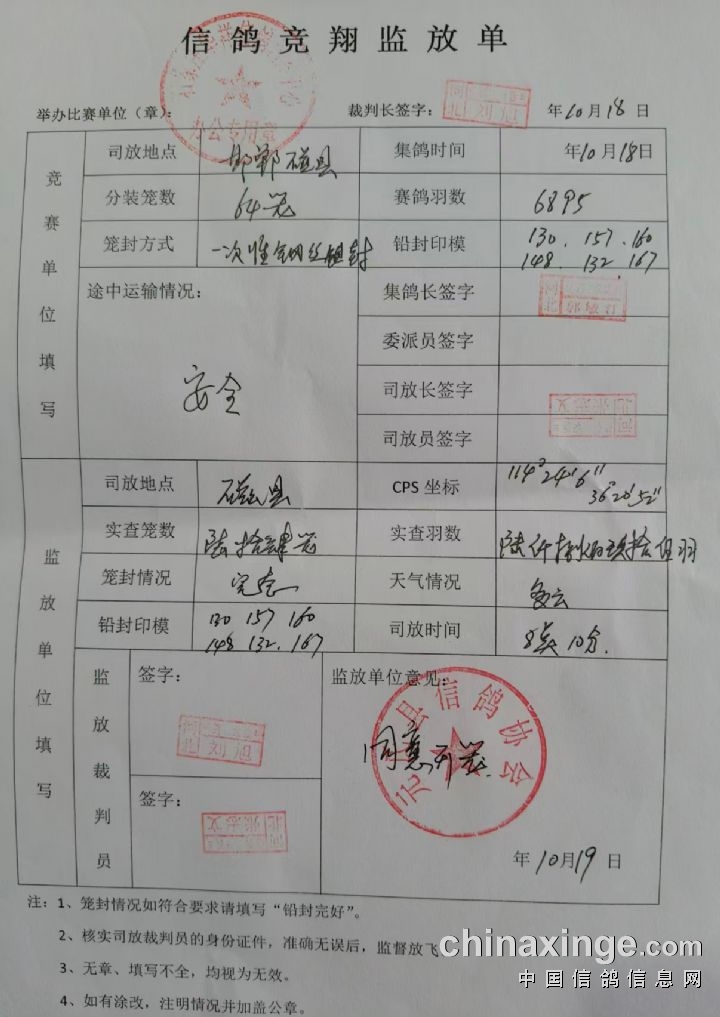 信鸽竞翔监放单
办公专用章
举办比赛单位（章）： 裁判长签字： 河北 刘旭 年10月18日
竞赛单位填写
司放地点 邯郸磁县 集鸽时间 年10月18日
分装笼数 64笼 赛鸽羽数 6895
笼封方式 一次性钢丝铅封 铅封印模 130．157．160
148．132．167
途中运输情况： 集鸽长签字 河北
安全 委派员签字
司放长签字 河北 张志文
司放员签字
监放单位填写
司放地点 磁县 CPS 坐标 114°24′6″
36°20′52″
实查笼数 陆拾肆笼 实查羽数 陆仟捌佰玖拾伍羽
笼封情况 完态 天气情况 多云
铅封印模 130 157 160 司放时间 8点10分
148．132．167
监放裁判员
签字： 监放单位意见：
河北 刘旭 县信鸽协会
同意开笼
签字：
河北 张志文
年10月19日
注：1、笼封情况如符合要求请填写“铅封完好”。
2、核实司放裁判员的身份证件，准确无误后，监督放飞
3、无章、填写不全，均视为无效。
4、如有涂改，注明情况并加盖公章。
chinaxinge.com
中国信鸽信息网